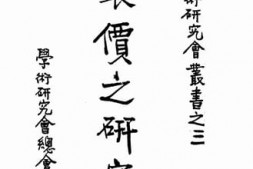 術研究會叢書之三
價之研究
學術研究會總會